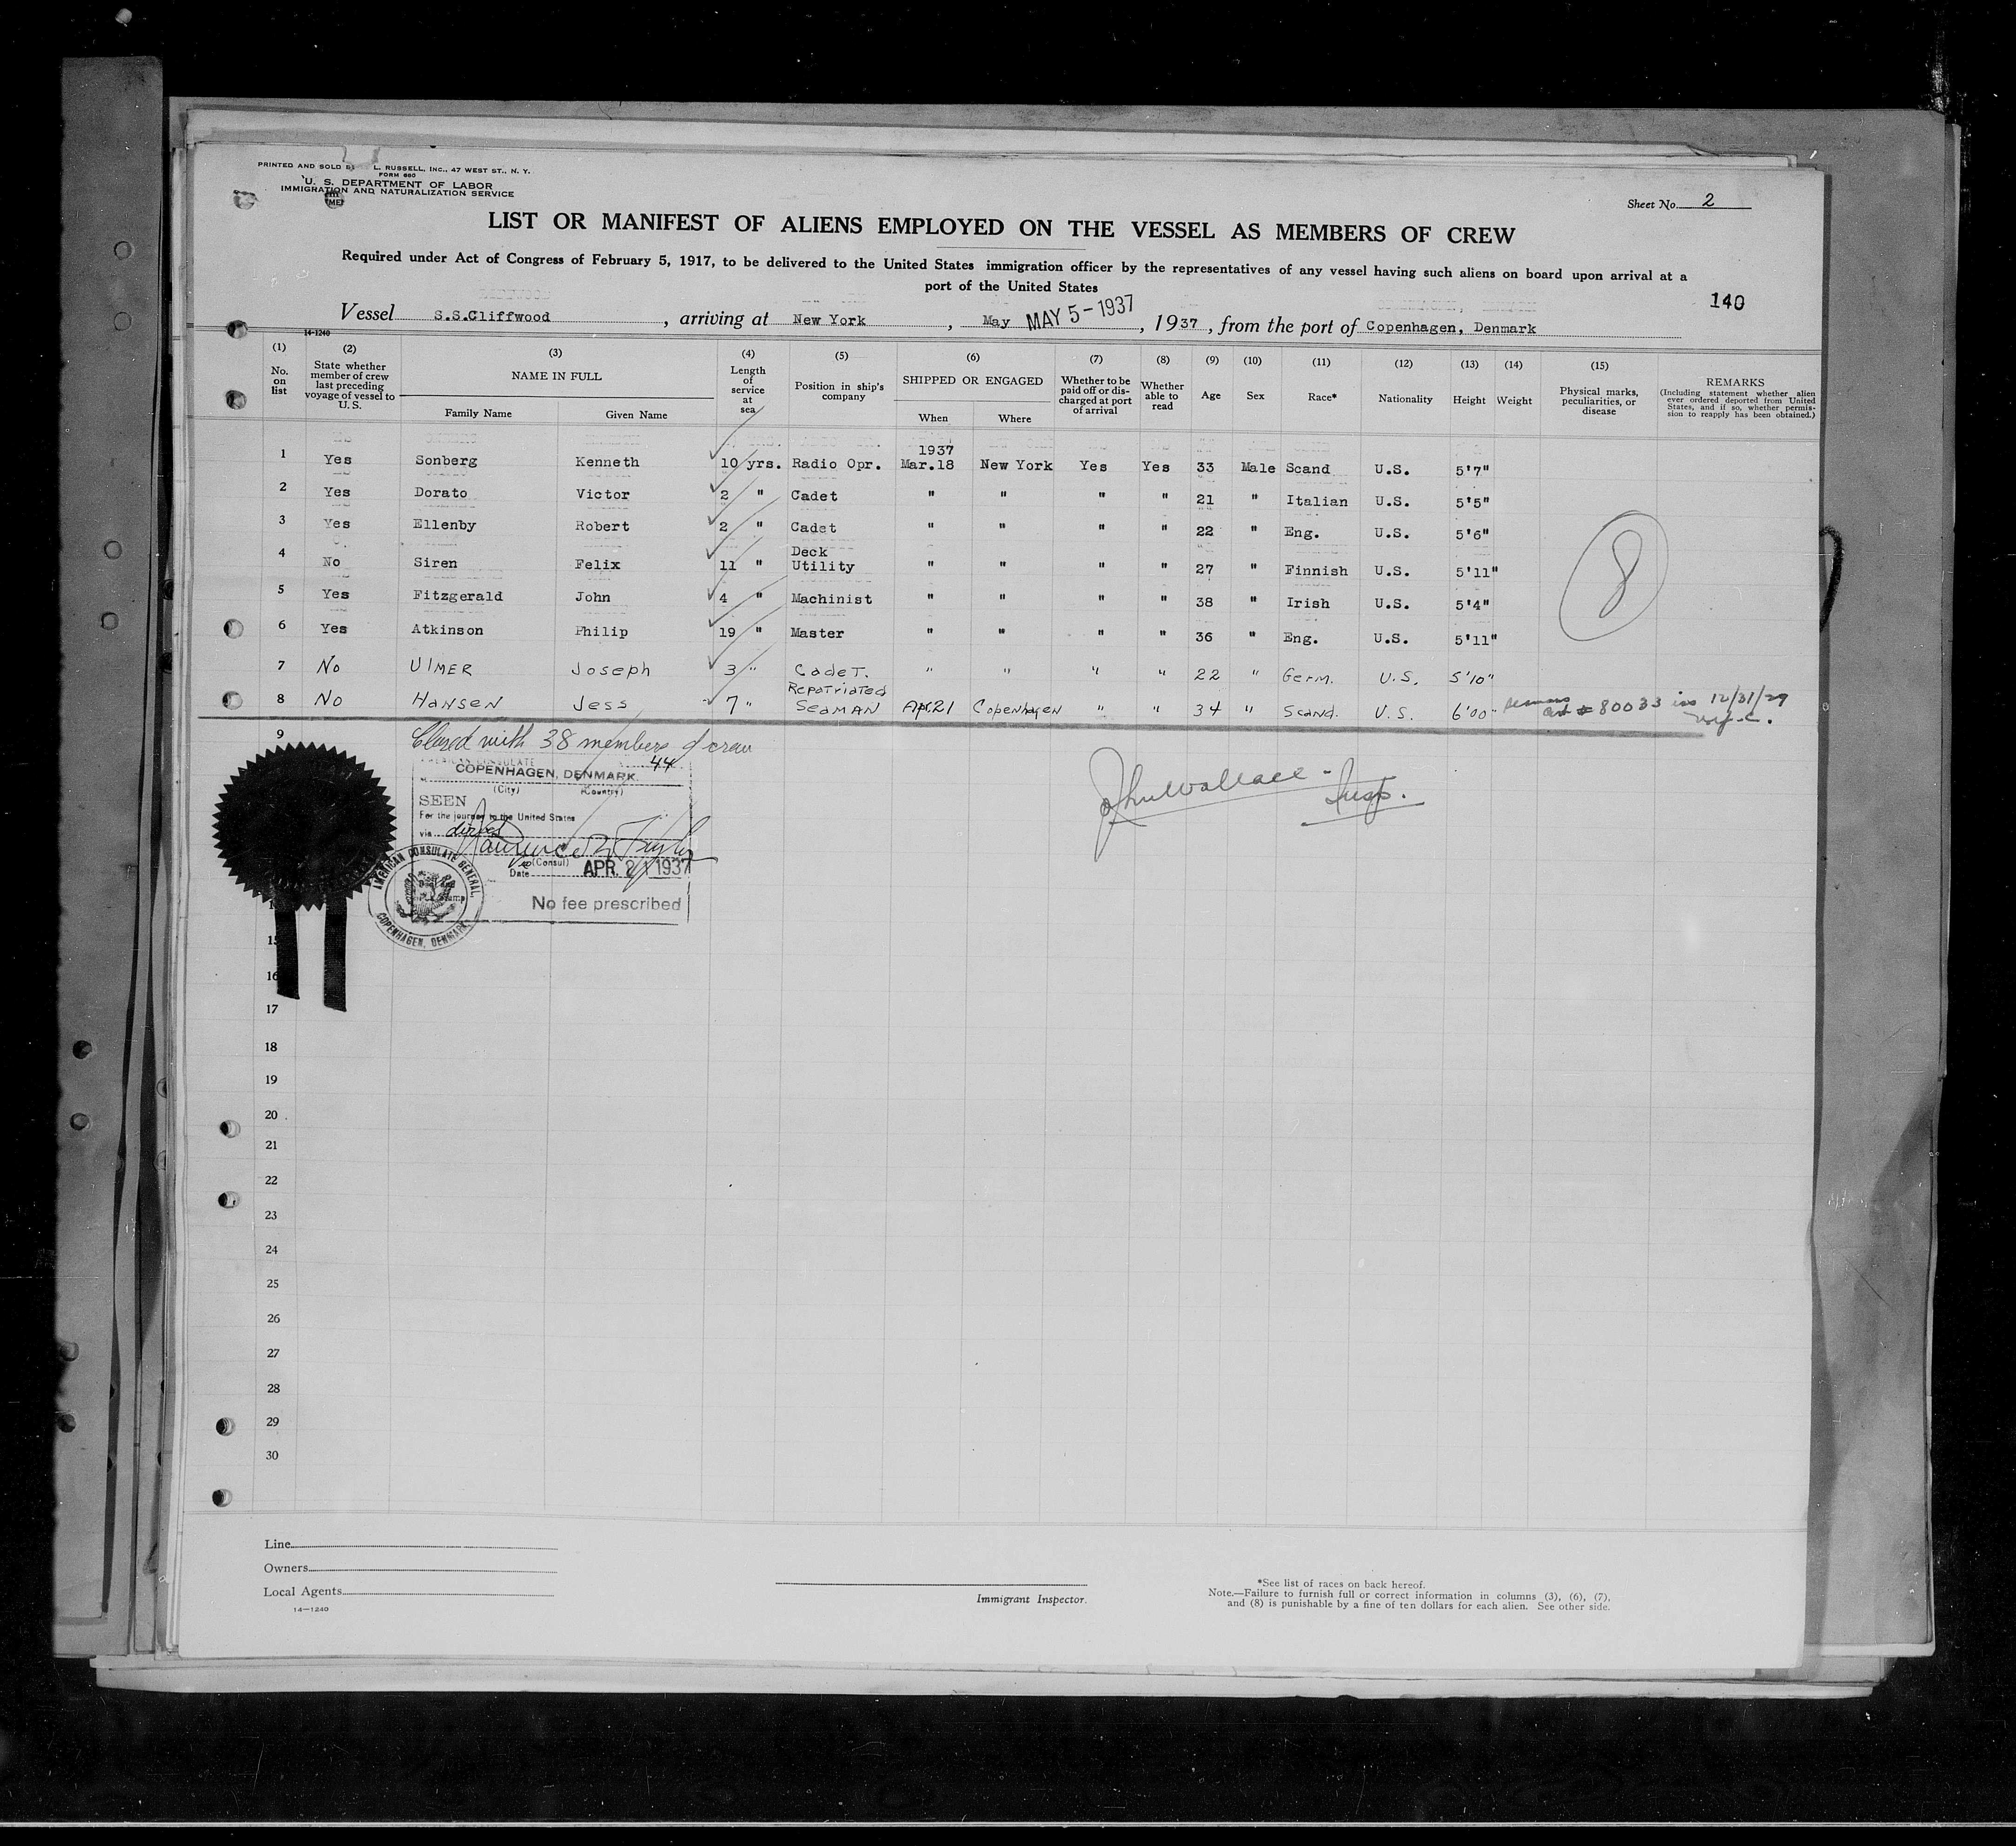 PRINTED AND SOLD BY L. RUSSELL, INC., 47 WEST ST., N. Y.
FORM 680
U. S. DEPARTMENT OF LABOR
IMMIGRATION AND NATURALIZATION SERVICE
Sheet No. 2
LIST OR MANIFEST OF ALIENS EMPLOYED ON THE VESSEL AS MEMBERS OF CREW
Required under Act of Congress of February 5, 1917, to be delivered to the United States immigration officer by the representatives of any vessel having such aliens on board upon arrival at a
port of the United States
140
Vessel S.S.Cliffwood, arriving at New York, May MAY 5-1937, 1937, from the port of Copenhagen, Denmark
14-1240
(1) (2) (3) (4) (5) (6) (7) (8) (9) (10) (11) (12) (13) (14) (15)
No. on list State whether member of crew last preceding voyage of vessel to U. S. NAME IN FULL Family Name Given Name Length of service at sea Position in ship's company SHIPPED OR ENGAGED When Where Whether to be paid off or discharged at port of arrival Whether able to read Age Sex Race* Nationality Height Weight Physical marks, peculiarities, or disease REMARKS (Including statement whether alien ever ordered deported from United States, and if so, whether permission to reapply has been obtained.)
1937
1 Yes Sonberg Kenneth 10 yrs. Radio Opr. Mar.18 New York Yes Yes 33 Male Scand U.S. 5'7"
2 Yes Dorato Victor 2 " Cadet " " " " 21 " Italian U.S. 5'5"
3 Yes Ellenby Robert 2 " Cadet " " " " 22 " Eng. U.S. 5'6"
4 No Siren Felix 11 " Deck Utility " " " " 27 " Finnish U.S. 5'11"
5 Yes Fitzgerald John 4 " Machinist " " " " 38 " Irish U.S. 5'4"
6 Yes Atkinson Philip 19 " Master " " " " 36 " Eng. U.S. 5'11"
8
7 No Ulmer Joseph 3 " Cadet. " " " " 22 " Germ. U.S. 5'10"
8 No Hansen Jess 7 " Repatriated Seaman Apr.21 Copenhagen " " 34 " Scand. U.S. 6'00" # 80033 iss 12/31/29
9
Closed with 38 members of crew
44
COPENHAGEN, DENMARK.
(City) (Country)
SEEN
For the journey to the United States
via direct
(Consul)
Date APR. 21 1937
No fee prescribed
AMERICAN CONSULATE GENERAL,
COPENHAGEN, DENMARK
John Wallace - Insp.
15
16
17
18
19
20
21
22
23
24
25
26
27
28
29
30
Line
Owners
Local Agents
14—1240
Immigrant Inspector.
*See list of races on back hereof.
Note.—Failure to furnish full or correct information in columns (3), (6), (7),
and (8) is punishable by a fine of ten dollars for each alien. See other side.